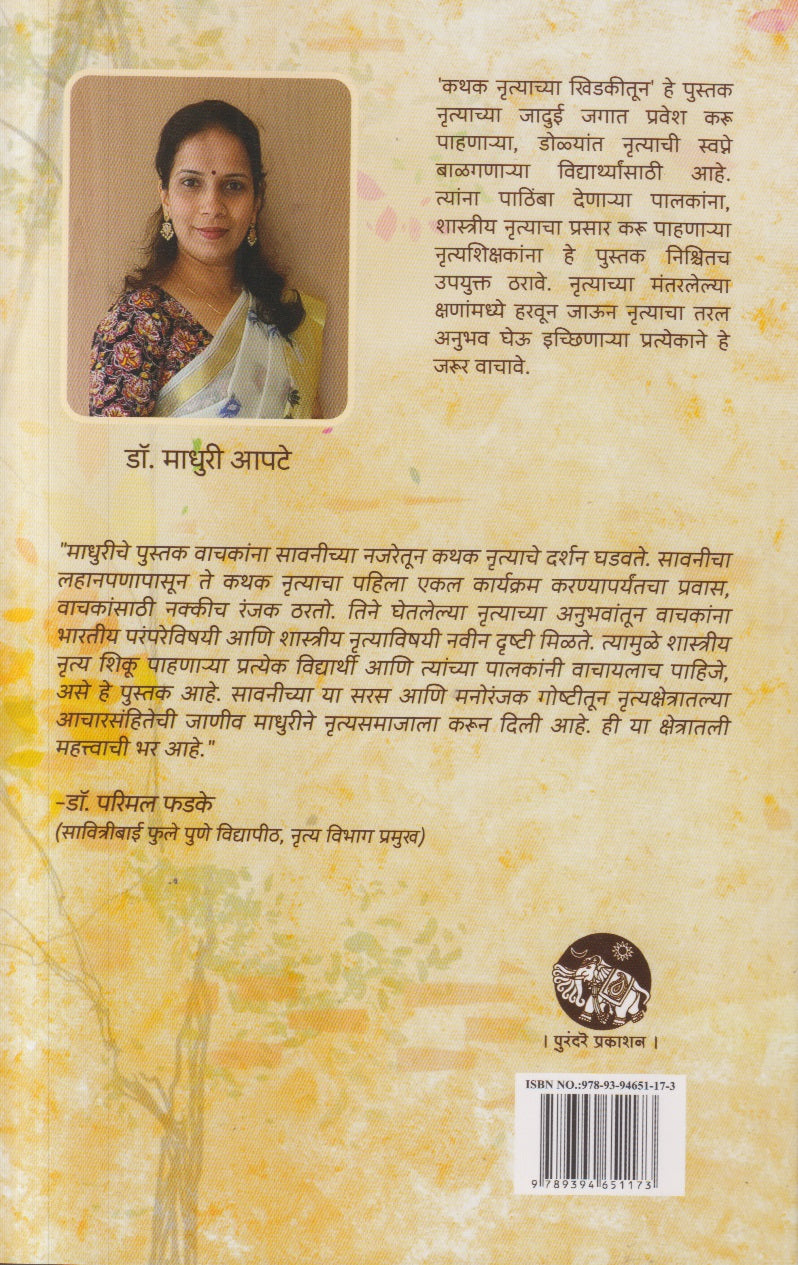 'कथक नृत्याच्या खिडकीतून' हे पुस्तक
नृत्याच्या जादुई जगात प्रवेश करू
पाहणाऱ्या, डोळ्यांत नृत्याची स्वप्ने
बाळगणाऱ्या विद्यार्थ्यांसाठी आहे.
त्यांना पाठिंबा देणाऱ्या पालकांना,
शास्त्रीय नृत्याचा प्रसार करू पाहणाऱ्या
नृत्यशिक्षकांना हे पुस्तक निश्चितच
उपयुक्त ठरावे. नृत्याच्या मंतरलेल्या
क्षणांमध्ये हरवून जाऊन नृत्याचा तरल
अनुभव घेऊ इच्छिणाऱ्या प्रत्येकाने हे
जरूर वाचावे.
डॉ. माधुरी आपटे
"माधुरीचे पुस्तक वाचकांना सावनीच्या नजरेतून कथक नृत्याचे दर्शन घडवते. सावनीचा
लहानपणापासून ते कथक नृत्याचा पहिला एकल कार्यक्रम करण्यापर्यंतचा प्रवास,
वाचकांसाठी नक्कीच रंजक ठरतो. तिने घेतलेल्या नृत्याच्या अनुभवांतून वाचकांना
भारतीय परंपरेविषयी आणि शास्त्रीय नृत्याविषयी नवीन दृष्टी मिळते. त्यामुळे शास्त्रीय
नृत्य शिकू पाहणाऱ्या प्रत्येक विद्यार्थी आणि त्यांच्या पालकांनी वाचायलाच पाहिजे,
असे हे पुस्तक आहे. सावनीच्या या सरस आणि मनोरंजक गोष्टीतून नृत्यक्षेत्रातल्या
आचारसंहितेची जाणीव माधुरीने नृत्यसमाजाला करून दिली आहे. ही या क्षेत्रातली
महत्त्वाची भर आहे."
-डॉ. परिमल फडके
(सावित्रीबाई फुले पुणे विद्यापीठ, नृत्य विभाग प्रमुख)
। पुरंदरे प्रकाशन ।
ISBN NO.:978-93-94651-17-3
9 789394 651173